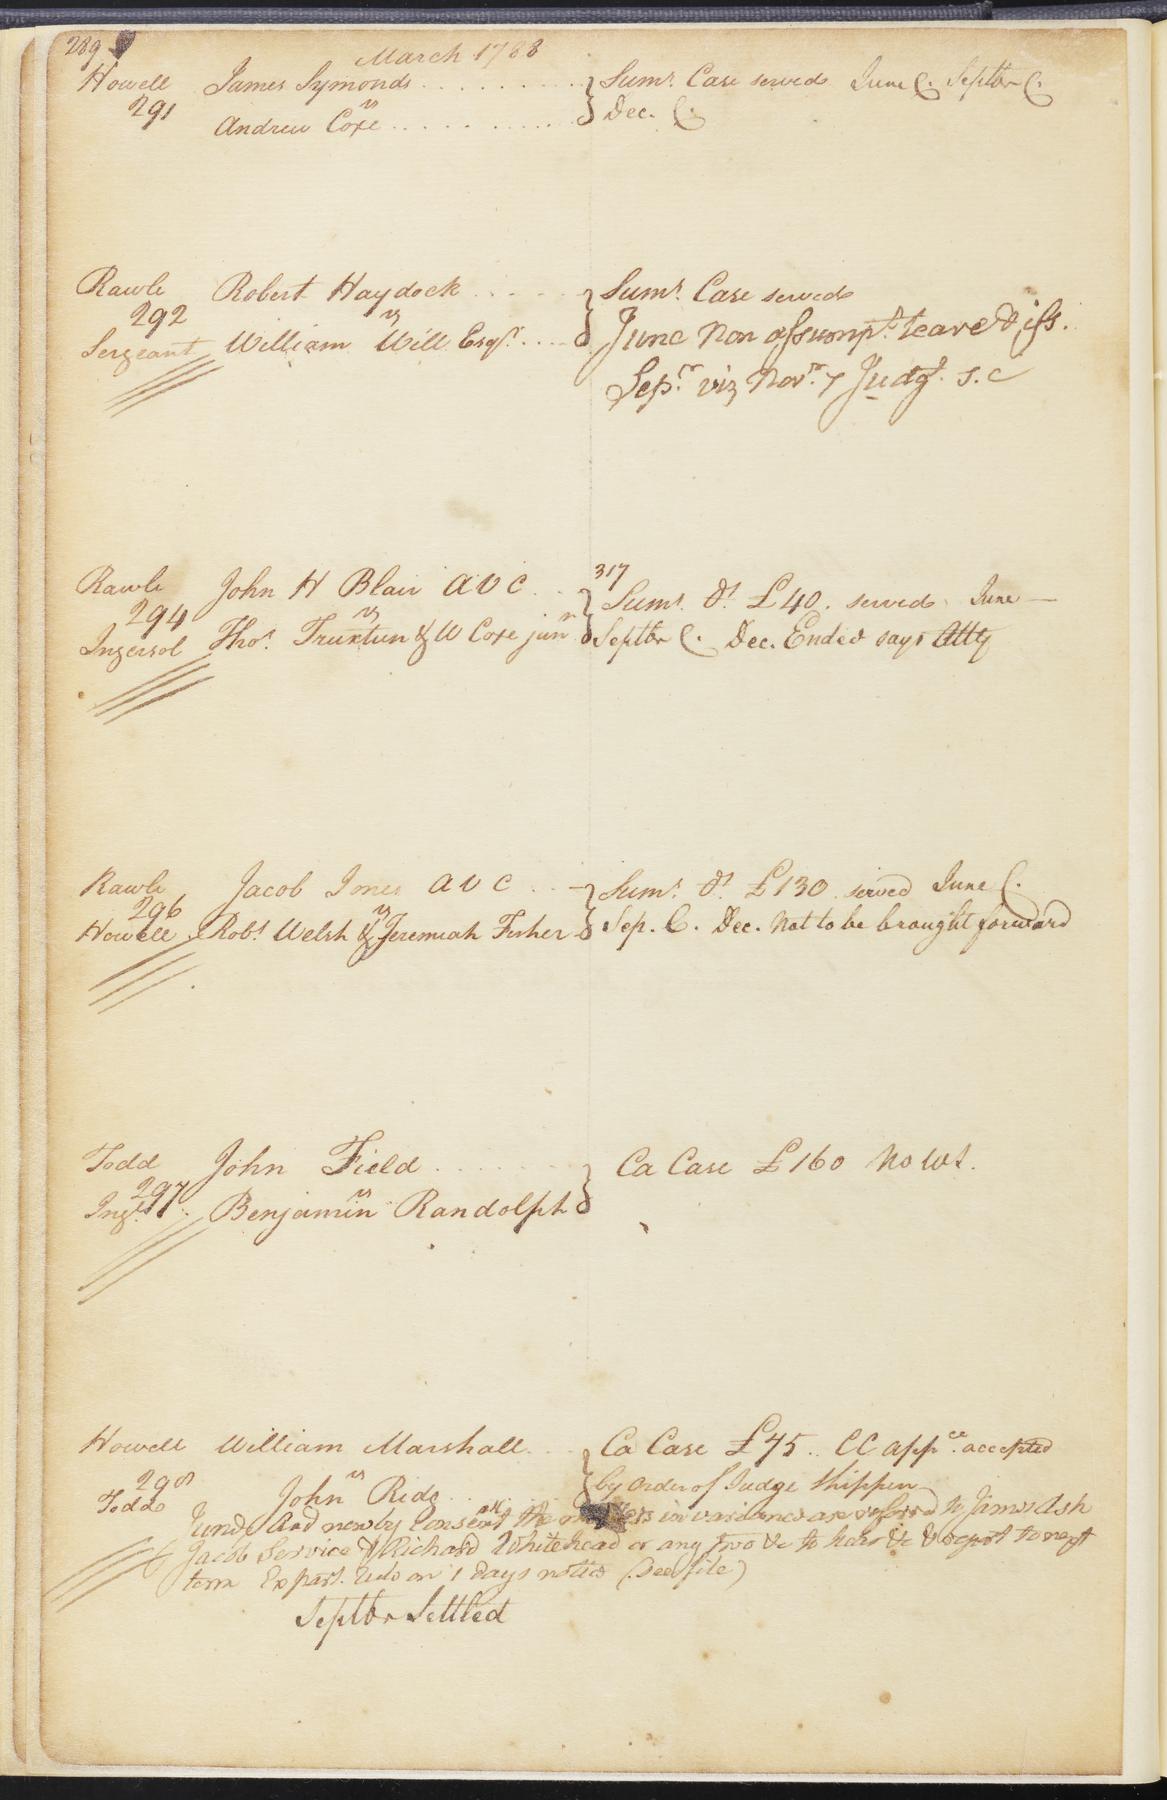 289
March 1788
Howell James Symonds . . . . . . . . . Sumr. Case served June C. Septbr C.
291 vs Dec. C.
Andrew Coxe . . . . . . . . . . .
Rawle Robert Haydock . . . . . Sumr. Case served
292 vs
Sergeant William Will Esqr. . . . . June Non assumpt. leave & iss.
Sepr. viz Novr. 7 Judgt. s. c
317
Rawle John H Blair a v c . . Sumr. dt. £40. served June —
294 vs
Ingersol Thos. Truxtun & W Coxe junr Septbr C. Dec. Ended says Atty
Rawle Jacob Jones a v c . . . Sumr. dt. £130 served June C.
296 vs
Howell Robt. Welsh & Jeremiah Fisher Sep. C. Dec. Not to be brought forward
Todd John Field . . . . . . . . Ca Case £160 No Wt.
297 vs
Ingl. Benjamin Randolph
Howell William Marshall . . . Ca Case £45 . . CC appce. accepted
298 vs by order of Judge Shippen
Todd John . .
And now by Consent the in variance are referred to James Ash
Jacob Service & Richard Whitehead or any two &c to hear &c & report to next
term Ex part. Rule on days notice (See file)
Septbr Settled